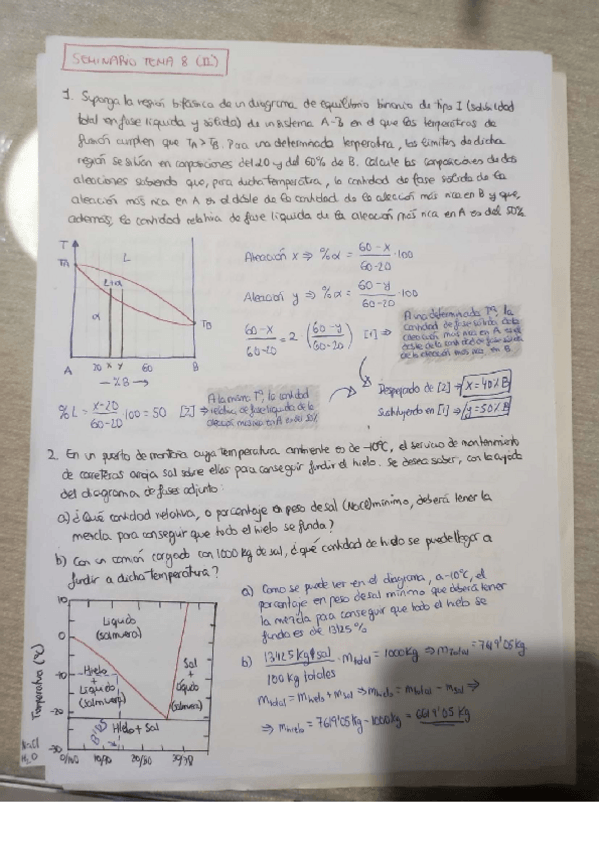 SEMINARIO TEMA 8 (II)
1. Suponga la región bifásica de un diagrama de equilibrio binario de tipo I (solubilidad
total en fase líquida y sólida) de un sistema A-B en el que las temperaturas de
fusión cumplen que TA > TB. Para una determinada temperatura, los límites de dicha
región se sitúan en composiciones del 20 y del 60% de B. Calcule las composiciones de dos
aleaciones sabiendo que, para dicha temperatura, la cantidad de fase sólida de la
aleación más rica en A es el doble de la cantidad de la aleación más rica en B y que,
además, la cantidad relativa de fase líquida de la aleación más rica en A es del 50%.
T
TA
L
L+α
α
TB
A 20 x y B
— %B →
Aleación x ⇒ %α = 60-x / 60-20 · 100
Aleación y ⇒ %α = 60-y / 60-20 · 100
60-x / 60-20 = 2 · (60-y / 60-20) [1] ⇒
A una determinada Tª, la
cantidad de fase sólida de la
aleación más rica en A es el
doble de la cantidad de fase sólida
de la aleación más rica en B.
%L = x-20 / 60-20 · 100 = 50 [2] ⇒
A la misma Tª, la cantidad
relativa de fase líquida de la
aleación más rica en A es del 50%
Despejando de [2] → x = 40% B
Sustituyendo en [1] → y = 50% B
2. En un puerto de montaña cuya temperatura ambiente es de -10ºC, el servicio de mantenimiento
de carreteras arroja sal sobre ellas para conseguir fundir el hielo. Se desea saber, con la ayuda
del diagrama de fases adjunto:
a) ¿Qué cantidad relativa, o porcentaje en peso de sal (NaCl) mínimo, deberá tener la
mezcla para conseguir que todo el hielo se funda?
b) Con un camión cargado con 1000 kg de sal, ¿qué cantidad de hielo se puede llegar a
fundir a dicha temperatura?
Temperatura (ºC)
10
0
-10
-20
-30
Líquido
(salmuera)
Hielo
+
Líquido
(salmuera)
Sal
+
Líquido
(salmuera)
Hielo + Sal
NaCl
H2O
0/100 10/90 20/80 30/70
a) Como se puede ver en el diagrama, a -10ºC, el
porcentaje en peso de sal mínimo que deberá tener
la mezcla para conseguir que todo el hielo se
funda es de 13'125%
b) 13'125 kg sal / 100 kg totales · mtotal = 1000 kg ⇒ mtotal = 7619'05 kg
mtotal = mhielo + msal ⇒ mhielo = mtotal - msal ⇒
⇒ mhielo = 7619'05 kg - 1000 kg = 6619'05 kg